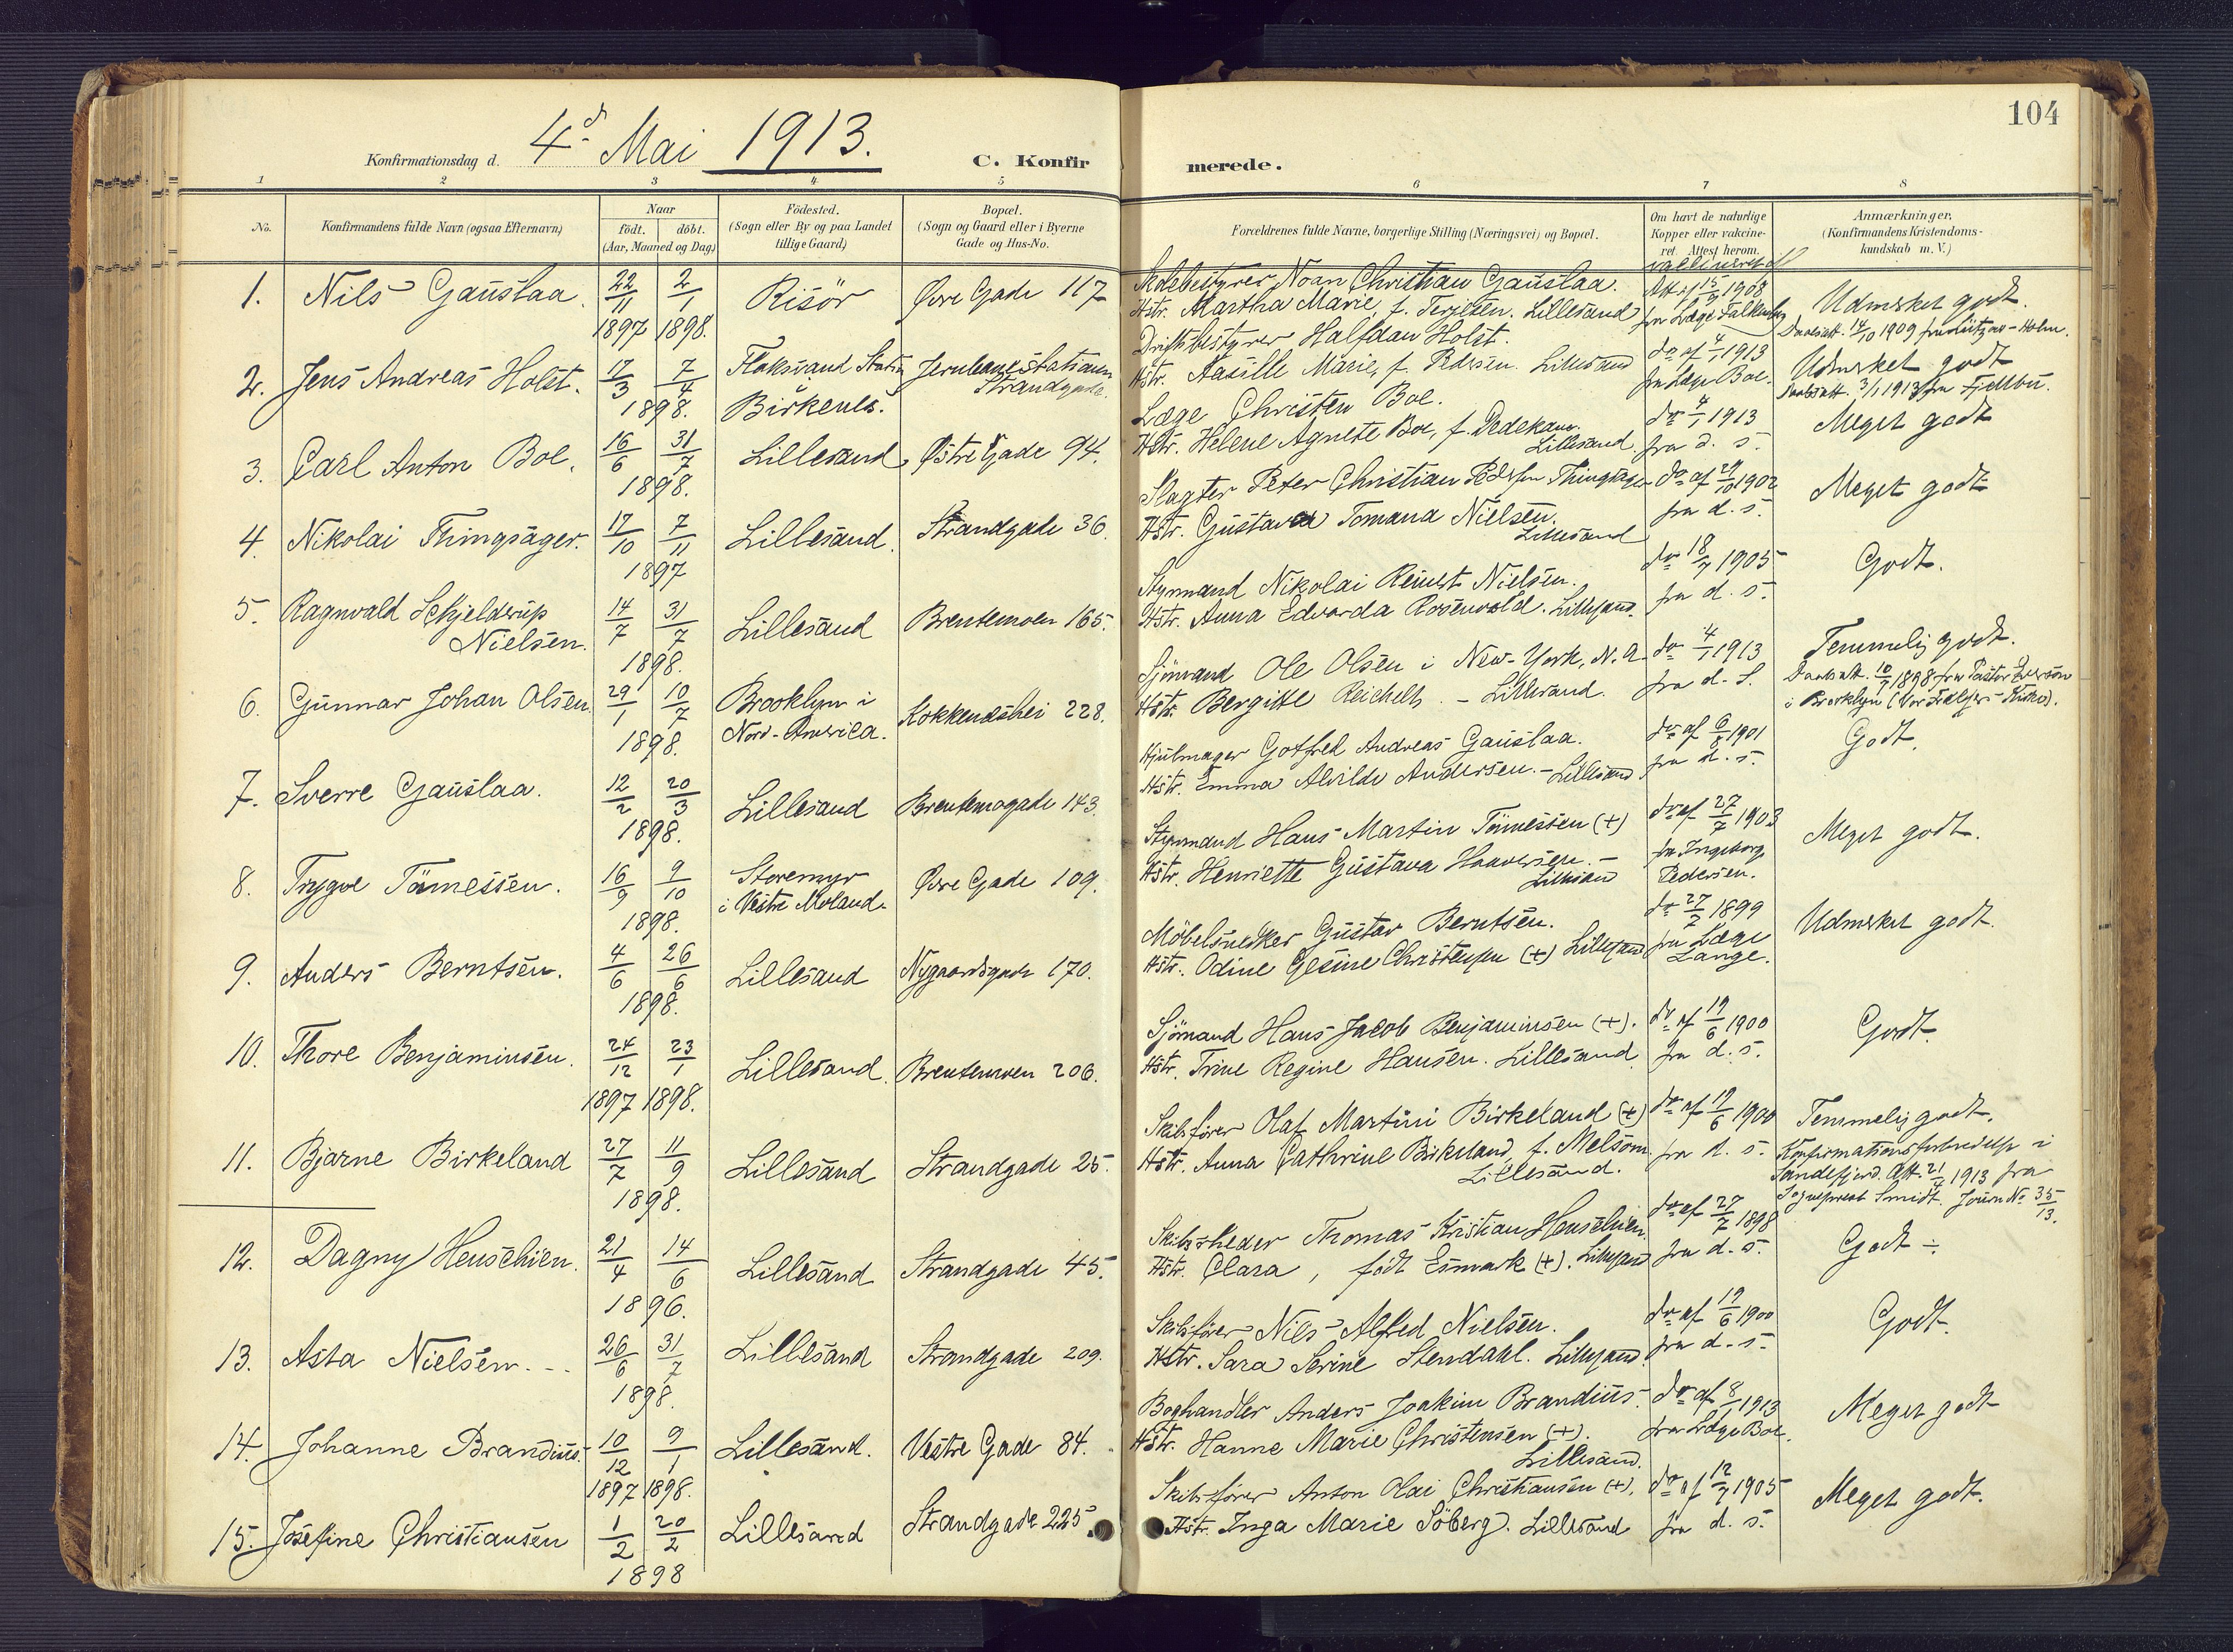 104
Konfirmationsdag d. 4d Mai 1913.
C. Konfirmerede.
1 2 3 4 5 6 7 8
No.
Konfirmandens fulde Navn (ogsaa Efternavn)
Naar
födt. döbt.
(Aar, Maaned og Dag)
Födested.
(Sogn eller By og paa Landet
tillige Gaard)
Bopæl.
(Sogn og Gaard eller i Byerne
Gade og Hus-No.
Forældrenes fulde Navne, borgerlige Stilling (Næringsvei) og Bopæl.
Om havt de naturlige
Kopper eller vakcine-
ret. Attest herom.
Anmærkninger,
(Konfirmandens Kristendoms-
kundskab m. V.)
1. Nils Gauslaa. 22/11 1897 2/1 1898. Risör Øvre Gade 117
Skolebestyrer Noan Christian Gauslaa.
Hstr. Martha Marie, f. Terjesen. Lillesand
1908
fra Læge Falkenberg
Udmerket godt.
Daabsatt. 14/10 1909
2. Jens Andreas Holst. 17/3 7/4 1898. Flaksvand Station i Birkenes. Jernbanestationen Strandgade.
Driftsbestyrer Halfdan Holst.
Hstr. Marie, f. Pedersen. Lillesand
do af 4/1 1913
fra Læge Boe.
Udmerket godt
Daabsatt. 3/1 1913 fra
3. Carl Anton Boe. 16/6 31/7 1898. Lillesand Østre Gade 94.
Læge Christen Boe.
Hstr. Helene Agnete Boe, f. Dedekam.
Lillesand.
do 4/1 1913
fra d. s.
Meget godt
4. Nikolai Thingsager. 17/10 7/11 1897 Lillesand. Strandgade 36.
Slagter Peter Christian Pedersen Thingsager
Hstr. Gustava Tomana Nielsen.
Lillesand
do af 29/10 1902
fra d. s.
Meget godt
5. Ragnvald Schjelderup
Nielsen. 14/7 31/7 1898. Lillesand Brentemoen 165.
Styrmand Nikolai Reinert Nielsen.
Hstr. Anna Edvarda Rosenvold. Lillesand.
do 18/7 1905
fra d. s.
Godt.
6. Gunnar Johan Olsen. 29/1 10/7 1898. Brooklyn i Nord-America. Kokkeneshei 228.
Sjömand Ole Olsen i New-York, N. A.
Hstr. Bergitte Reichelt. - Lillesand.
do 4/1 1913
fra d. s.
Temmelig godt.
Daabsatt. 10/7 1898 fra Pastor
i Brooklyn (Vor Frelsers Kirke).
7. Sverre Gauslaa. 12/2 20/3 1898. Lillesand Brentemogade 143.
Hjulmager Gotfred Andreas Gauslaa.
Hstr. Emma Alvilde Andersen. - Lillesand.
do af 6/8 1901
fra d. s.
Godt.
8. Trygve Tönnessen. 16/9 9/10 1898. Storemyr i Vestre Moland. Øvre Gade 109.
Styrmand Hans Martin Tönnessen (+)
Hstr. Henriette Gustava Haaversen. -
Lillesand
do af 27/7 1903
fra Ingeborg
Pedersen.
Meget godt.
9. Anders Berntsen. 4/6 26/6 1898. Lillesand Nygaardsgade 170.
Möbelsnedker Gustav Berntsen.
Hstr. Odine Gesine Christensen (+) Lillesand
do 27/7 1899
fra Læge
Lange.
Udmerket godt.
10. Thore Benjaminsen. 24/12 1897 23/1 1898. Lillesand. Brentemoen 206.
Sjömand Hans Jacob Benjaminsen (+).
Hstr. Trine Regine Hansen. Lillesand.
do af 19/6 1900
fra d. s.
Godt.
11. Bjarne Birkeland 27/7 11/9 1898. Lillesand Strandgade 25.
Skibsförer Olaf Martini Birkeland (+)
Hstr. Anna Cathrine Birkeland, f. Melsom
Lillesand.
do af 19/6 1900
fra d. s.
Temmelig godt.
Konfirmationsforberedelse i
Sandefjord. Att. 21/4 1913 fra
Sogneprest Smidt. Journ No 35/13.
12. Dagny Henschien. 21/4 14/6 1896. Lillesand Strandgade 45.
Skibsrheder Thomas Kristian Henschien
Hstr. Clara, födt Esmark (+). Lillesand
do af 27/7 1898
fra d. s.
Godt ÷
13. Asta Nielsen. 26/6 31/7 1898. Lillesand Strandgade 209.
Skibsförer Nils Alfred Nielsen.
Hstr. Sara Serine Stendahl. Lillesand.
do af 19/6 1900
fra d. s.
Godt.
14. Johanne Brandius. 10/12 1897 9/1 1898. Lillesand. Vestre Gade 84.
Boghandler Anders Joakim Brandius.
Hstr. Hanne Marie Christensen (+).
Lillesand.
do af 8/1 1913
fra Læge Boe.
Meget godt
15. Josefine Christiansen 1/2 20/2 1898 Lillesand Strandgade 225.
Skibsförer Anton Olai Christiansen (+).
Hstr. Inga Marie Söberg. Lillesand
do af 12/7 1905
fra d. s.
Meget godt.